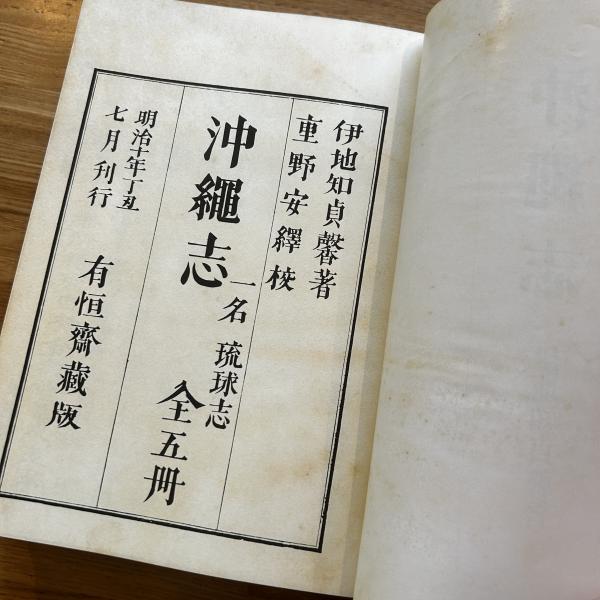 伊地知貞馨著
重野安繹校
沖繩志
一名 琉球志
全五冊
明治十年丁丑
七月刊行
有恒齋藏版